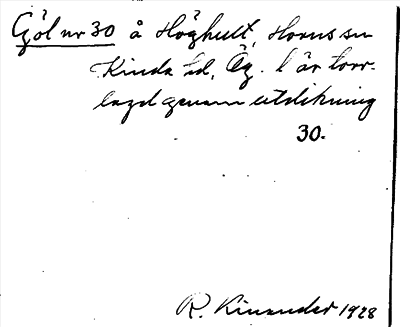 Göl nr 30 å Höghult, Horns sn
Kinda hd, Ög. l är torr-
lagd genom utdikning
30.
R. Kinander 1928